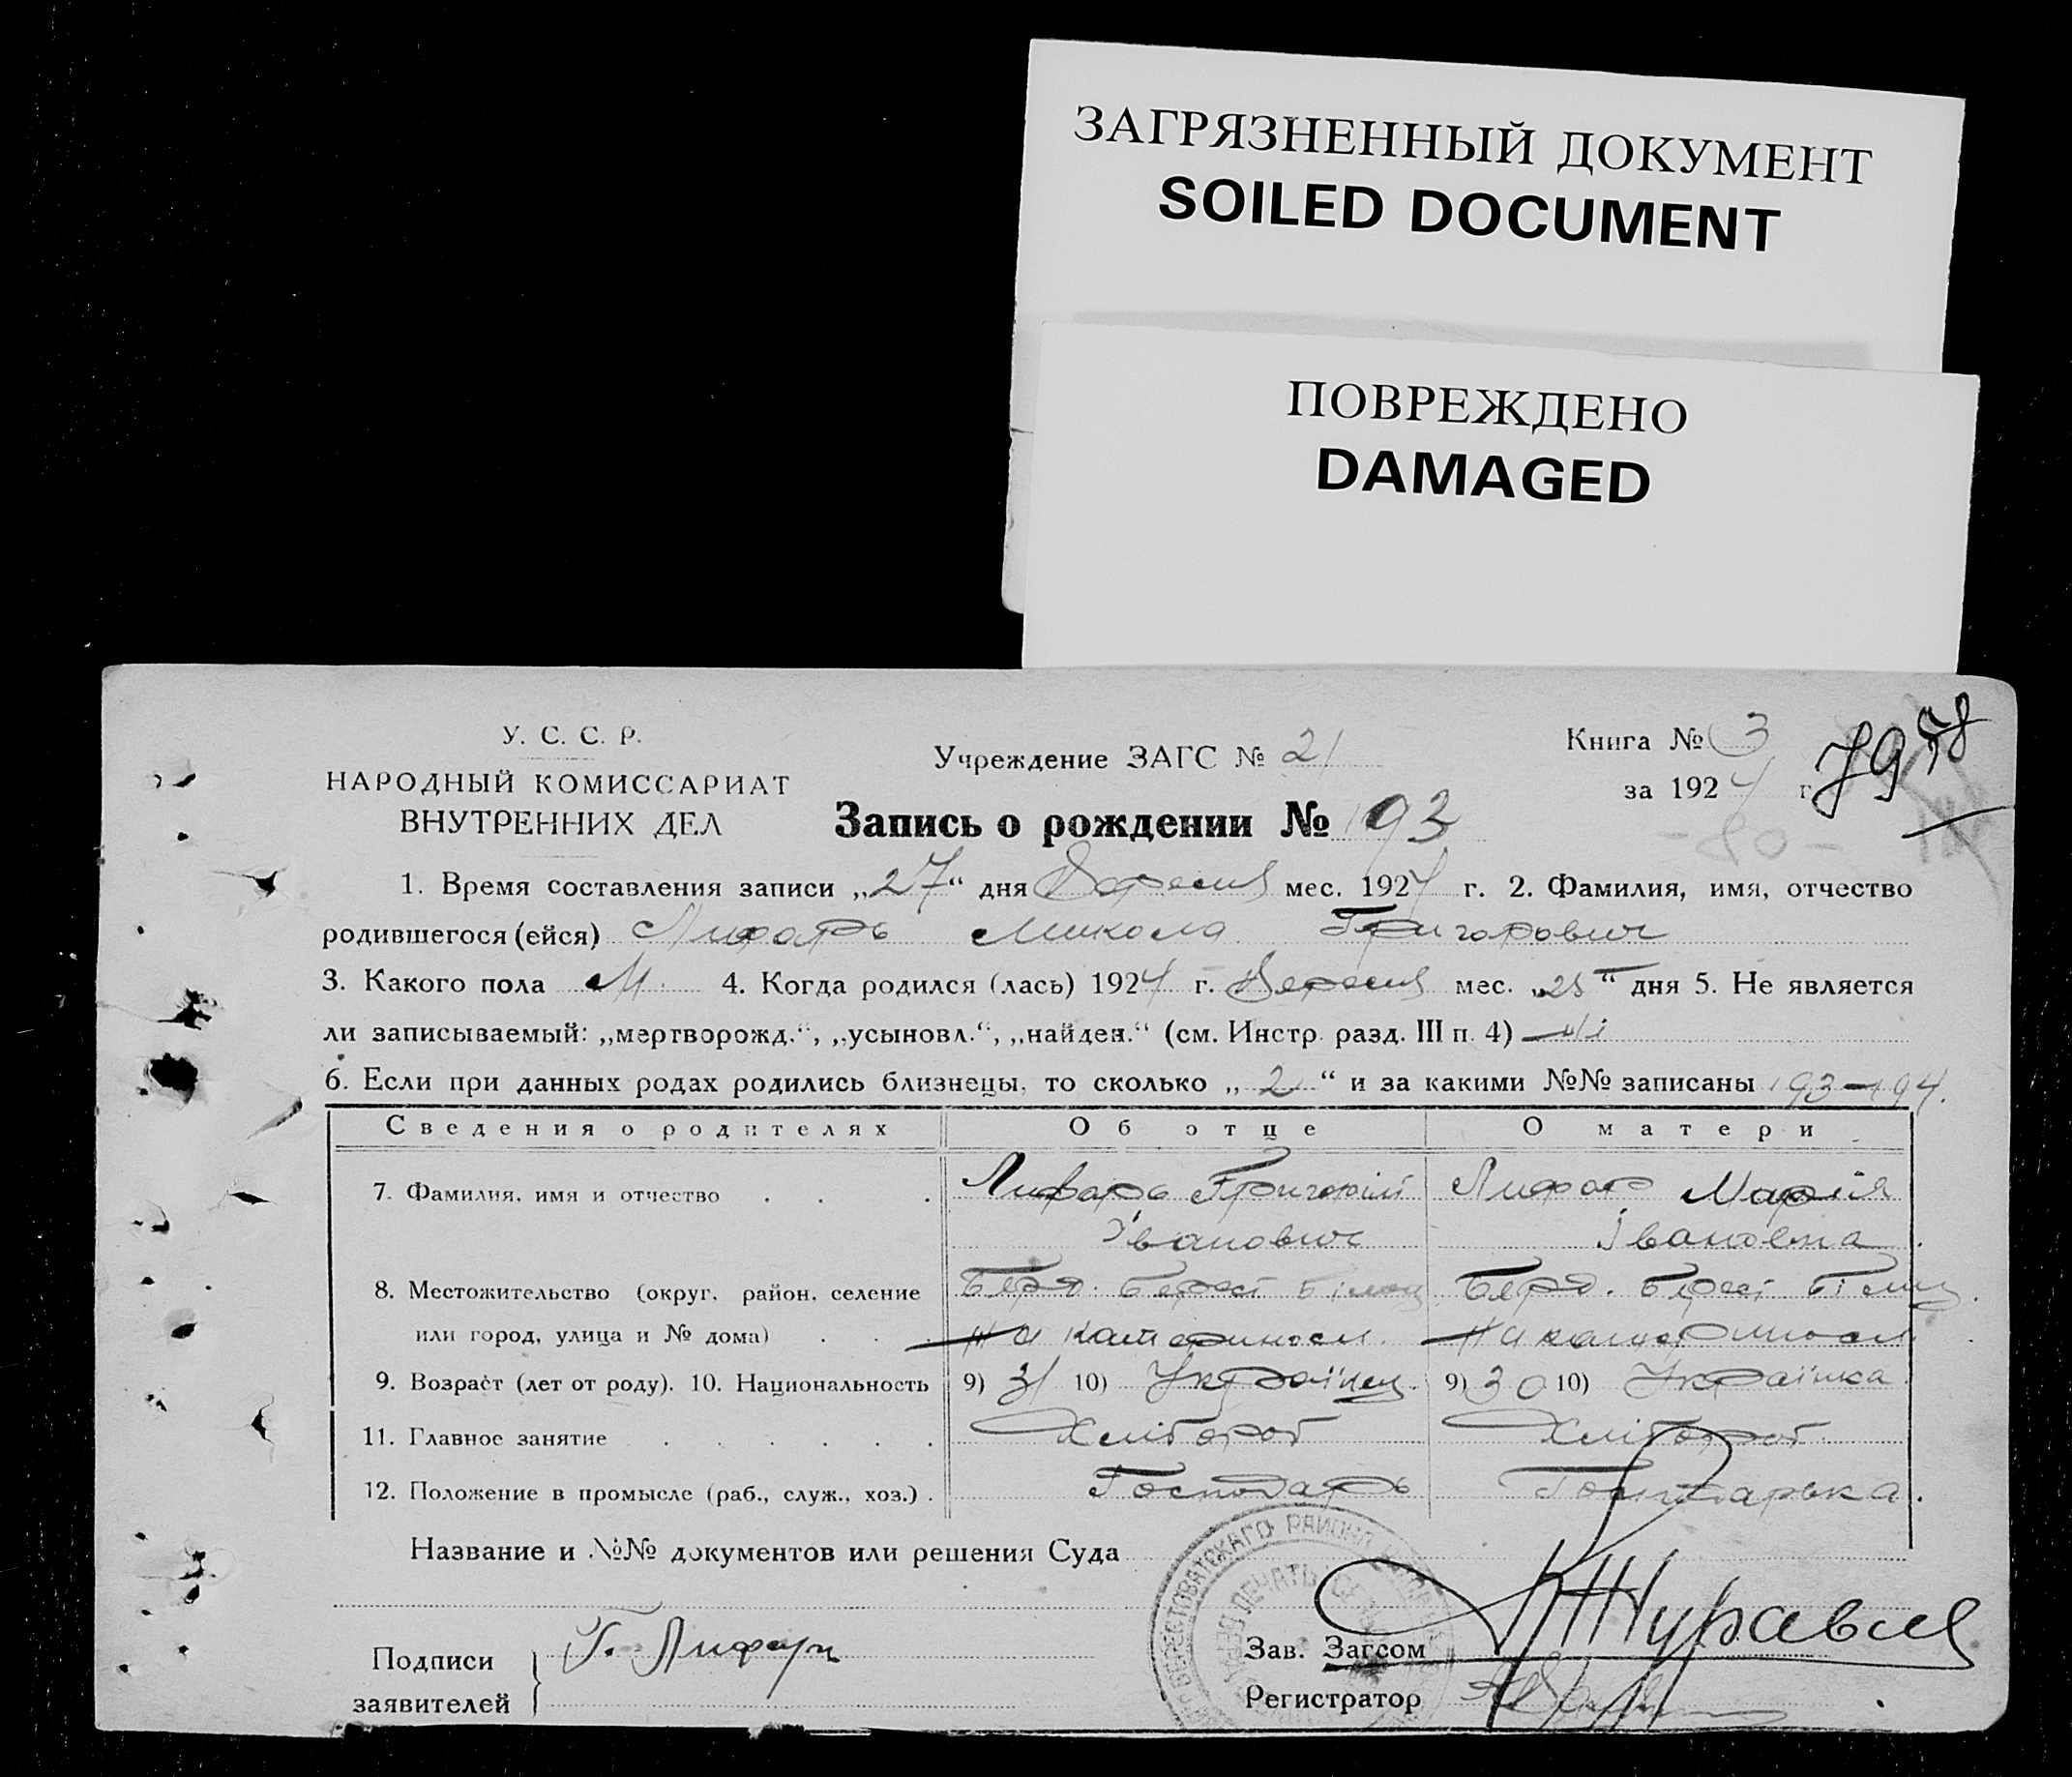 ЗАГРЯЗНЕННЫЙ ДОКУМЕНТ
SOILED DOCUMENT
ПОВРЕЖДЕНО
DAMAGED
У. С. С. Р.
НАРОДНЫЙ КОМИССАРИАТ
ВНУТРЕННИХ ДЕЛ
Учреждение ЗАГС № 21
Книга № 3
за 1924 г.
79 78
- 80 -
Запись о рождении № 193
1. Время составления записи „27“ дня Вересня мес. 1924 г. 2. Фамилия, имя, отчество
родившегося (ейся) Лифарь Микола Григорович
3. Какого пола М. 4. Когда родился (лась) 1924 г. Вересня мес. „25“ дня 5. Не является
ли записываемый: „мертворожд.“, „усыновл.“, „найден.“ (см. Инстр. разд. III п. 4) ні
6. Если при данных родах родились близнецы, то сколько „2“ и за какими №№ записаны 193—194.
Сведения о родителях Об отце О матери
7. Фамилия, имя и отчество . . . Лифарь Григорій Лифар Марія
Іванович Івановна
8. Местожительство (округ, район, селение Берд. Берест Бердя. Берест
или город, улица и № дома) . . .
9. Возраст (лет от роду). 10. Национальность 9) 31 10) Українец. 9) 30 10) Українка
11. Главное занятие . . . . . . Хлібороб Хлібороб
12. Положение в промысле (раб., служ., хоз.) . Господарь Господарька.
Название и №№ документов или решения Суда
БЕРЕСТОВАТСКАГО РАЙОНА
ПЕЧАТЬ
Подписи Г. Лифарь
заявителей
Зав. Загсом Журавль
Регистратор